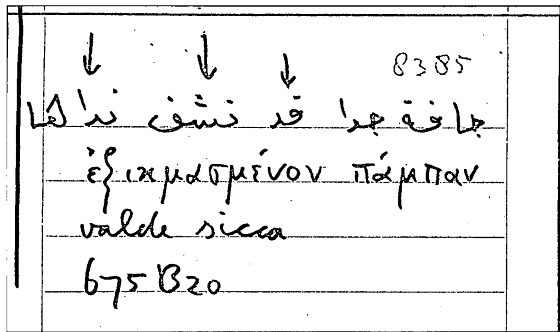 8385
جافة جدا قد نشف نداها
ἐξικμασμένον πάμπαν
valde sicca
675B20